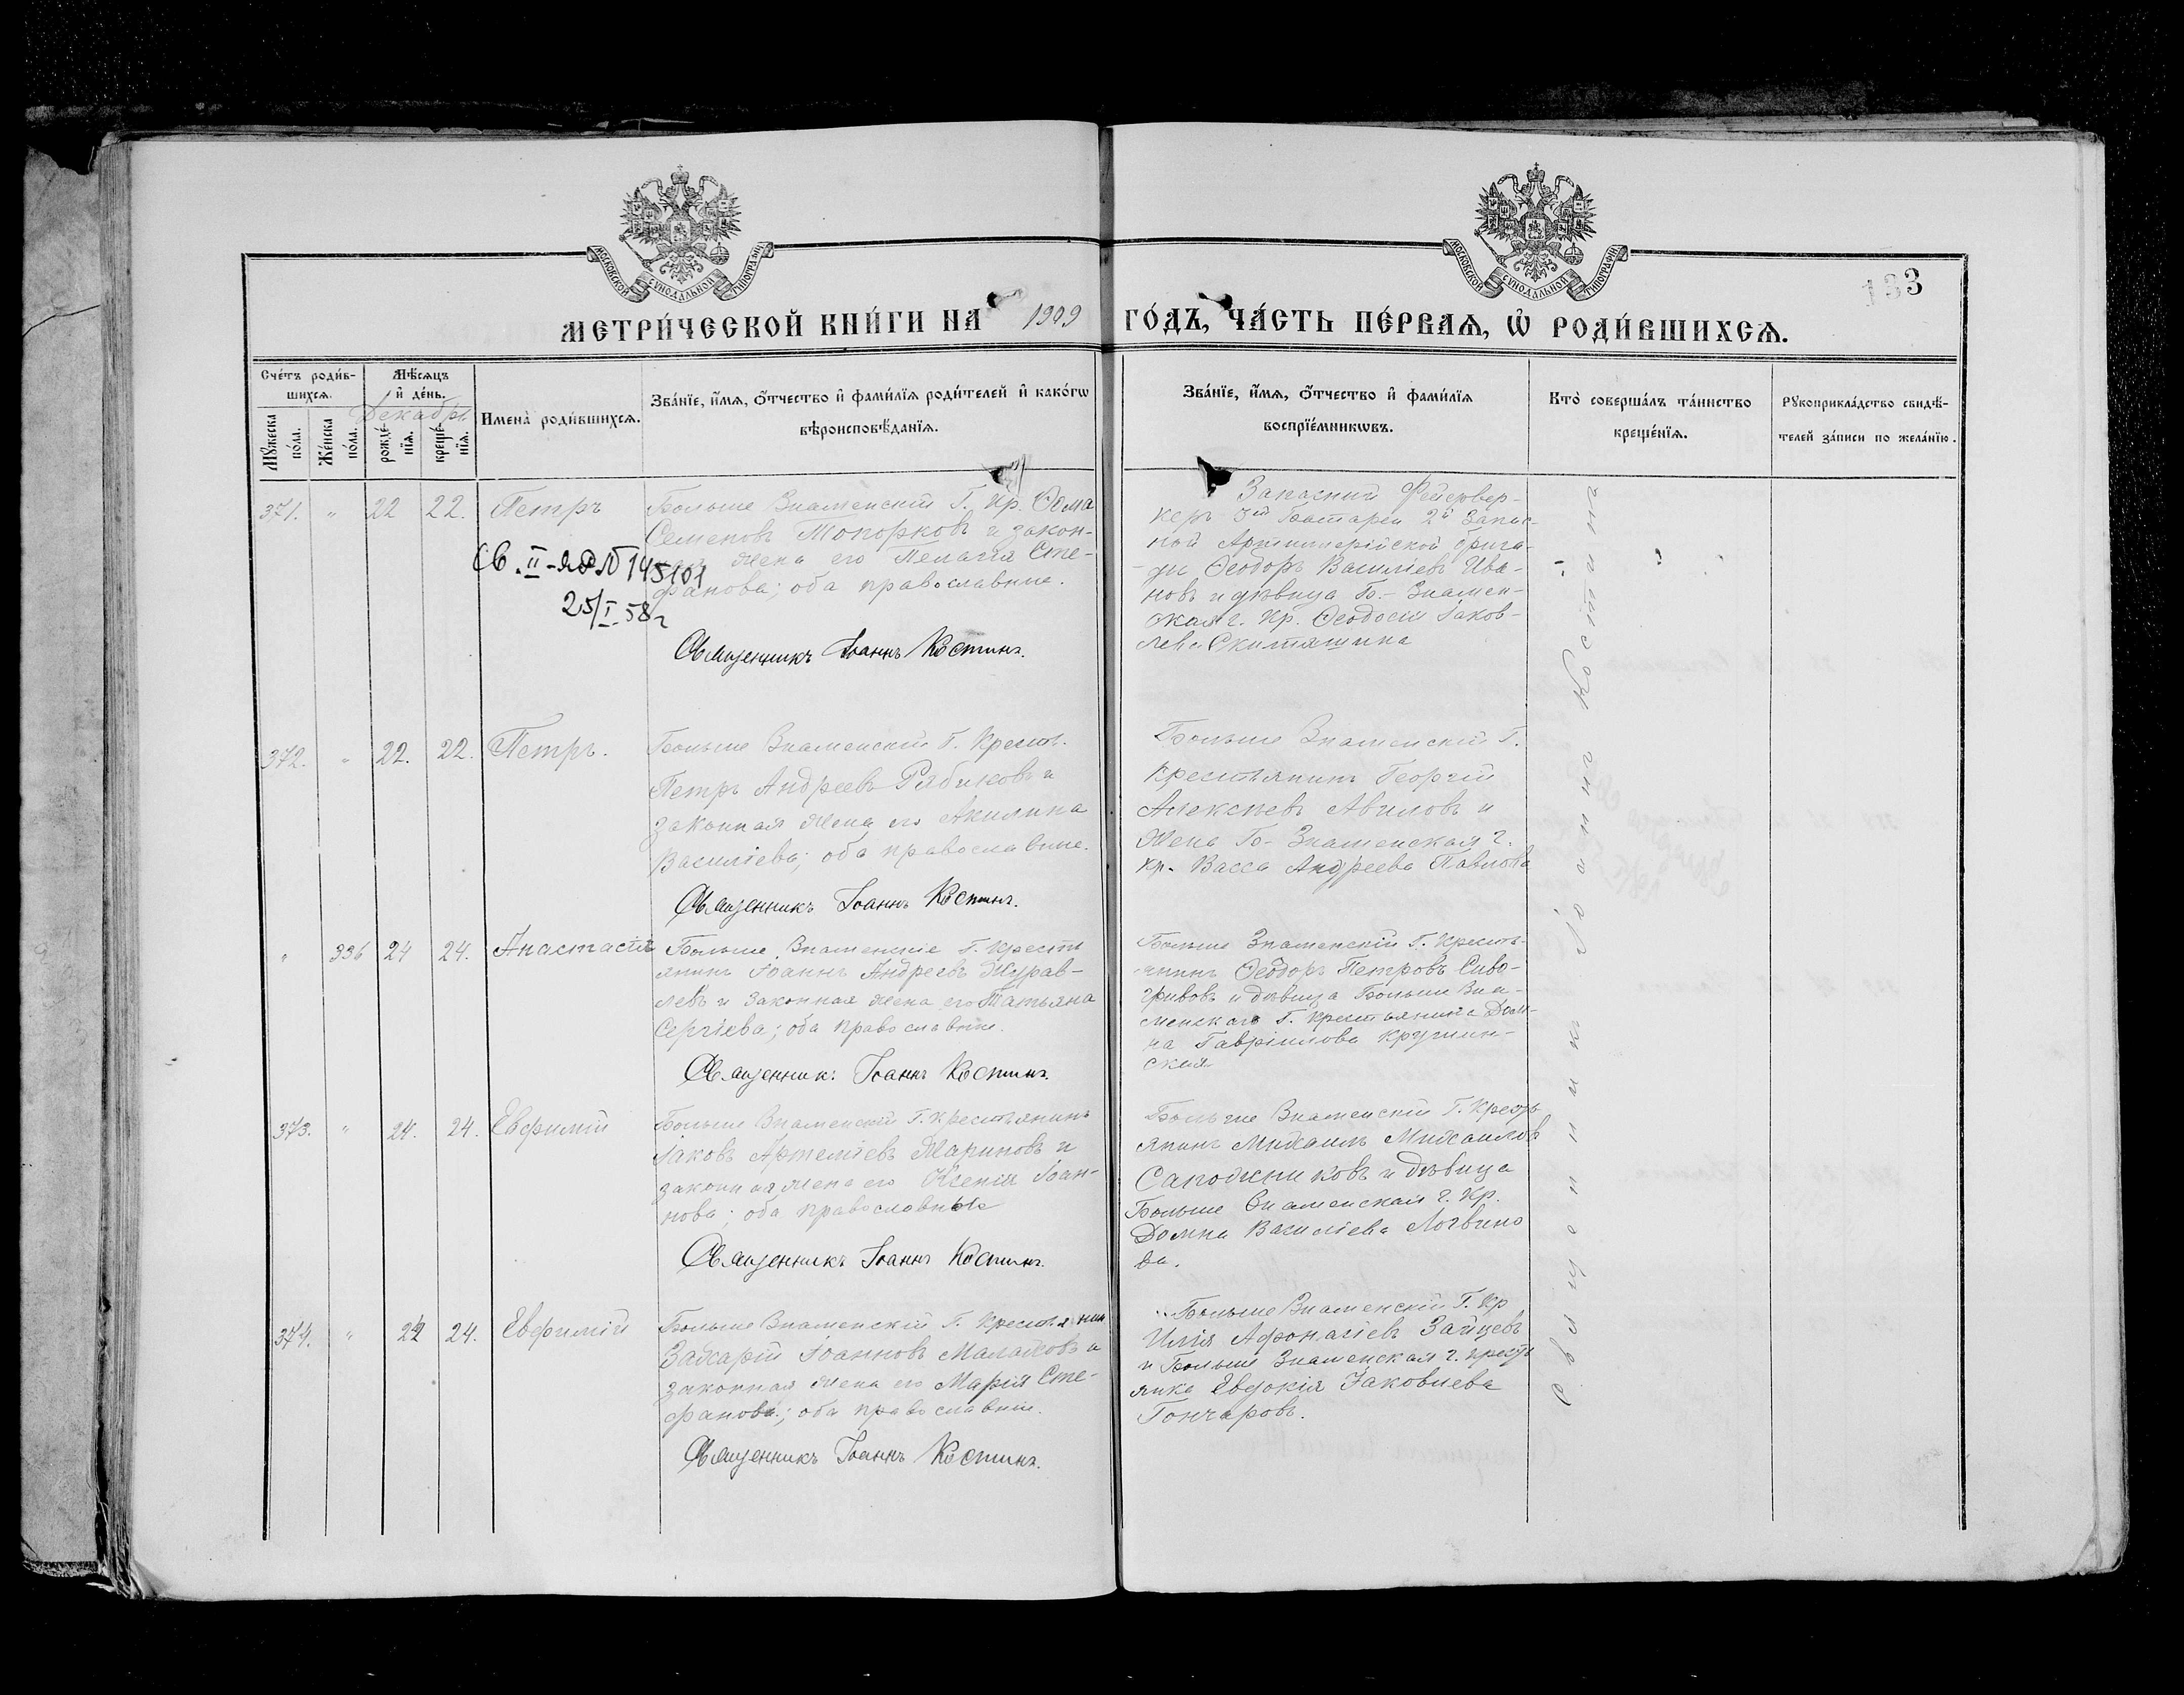 МОСКОВСКОЙ СѴНОДАЛЬНОЙ ТИПОГРАФІИ
МОСКОВСКОЙ СѴНОДАЛЬНОЙ ТИПОГРАФІИ
133
МЕТРИ́ЧЕСКОЙ КНИ́ГИ НА 1909 ГО́ДЪ, ЧА́СТЬ ПЕ́РВАѦ, Ѡ҆ РОДИ́ВШИХСѦ.
Сче́тъ роди́в-
шихсѧ.
Мꙋ́жеска по́ла.
Же́нска по́ла.
Мѣ́сѧцъ
и҆ де́нь.
Декабрь
рожде́-
нїѧ.
креще́-
нїѧ.
И҆мена̀ роди́вшихсѧ.
Зва́нїе, и҆́мѧ, ѻ҆́тчество и҆ фами́лїѧ роди́телей и҆ како́гѡ
вѣроисповѣ́данїѧ.
Зва́нїе, и҆́мѧ, ѻ҆́тчество и҆ фами́лїѧ
воспрїе́мникѡвъ.
Кто̀ соверша́лъ та́инство
креще́нїѧ.
Рꙋкоприкла́дство свидѣ́-
телей за́писи по жела́нїю.
371. " 22 22. Петръ
Больше Знаменскій Г. Кр. Ѳома
Семеновъ Топорковъ и закон-
жена его Пелагія Сте-
фанова; оба православные.
Св. II-ЯР № 145101
25/I 58 г
Священникъ Іоаннъ Костинъ.
Запасный Фейервер-
керъ 3й Батареи 2й Запас-
ной Артиллерійской брига-
ды Ѳеодоръ Василіевъ Ива-
новъ и дѣвица Б.- Знамен-
ская г. Кр. Ѳеодосія Іаков-
лева Скитяшина
372. " 22. 22. Петръ.
Больше Знаменскій Г. Крест.
Петръ Андреевъ Рябиковъ и
законная жена его Акилина
Василіева; оба православные.
Священникъ Іоаннъ Костинъ.
Больше Знаменскій Г.
Крестьянинъ Георгій
Алексѣевъ Авиловъ и
жена Б- Знаменская г.
кр. Васса Андреева Павлова
" 336 24 24. Анастасія
Больше Знаменскіе Г. Крестя
янинъ Іоаннъ Андреевъ Журав-
левъ и законная жена его Татьяна
Сергіева; оба православные.
Священник: Іоаннъ Костинъ.
Больше Знаменскій Г. Кресть-
янинъ Ѳеодоръ Петровъ Сиво-
гривовъ и дѣвица Больше Зна-
менская Г. крестьянина Дом-
на Гавріилова Кружин-
ская
373. " 24. 24. Евфимій
Больше Знаменскій Г. Крестьянинъ
Іаковъ Артеміевъ Мариновъ и
законная жена его Ксенія Іоан-
нова; оба православные
Священникъ Іоаннъ Костинъ.
Больше Знаменскій Г. Кресть
янинъ Михаилъ Михаиловъ
Сапожниковъ и дѣвица
Больше Знаменская г. Кр.
Домна Василіева Логвино
ва.
374. " 24 24. Евфимій
Больше Знаменскій Г. Крестьянин
Захарій Іоанновъ Малаховъ и
законная жена его Марія Сте-
фанова; оба православные.
Священникъ Іоаннъ Костинъ.
Больше Знаменскій Г. Кр
Илія Афонасіевъ Зайцевъ
и Больше Знаменская г. крестъ
янка Евдокія Іаковлева
Гончаровъ.
Священникъ Іоаннъ Костинъ